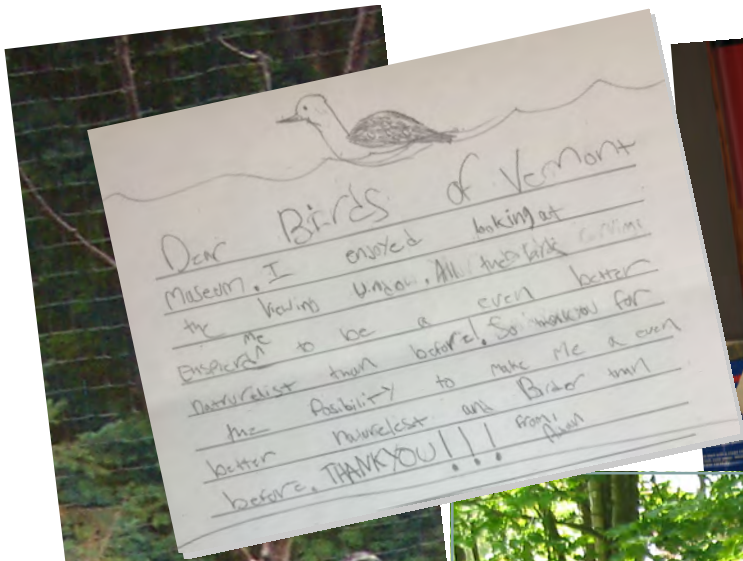 Dear Birds of Vermont
Museum. I enjoyed looking at
the Viewing Window. All the
me
Enspierd ^ to be a even better
naturelist than before!. So thankyou for
the Posibility to make me a even
better naturelest and Birder than
before. THANKYOU!!! from,